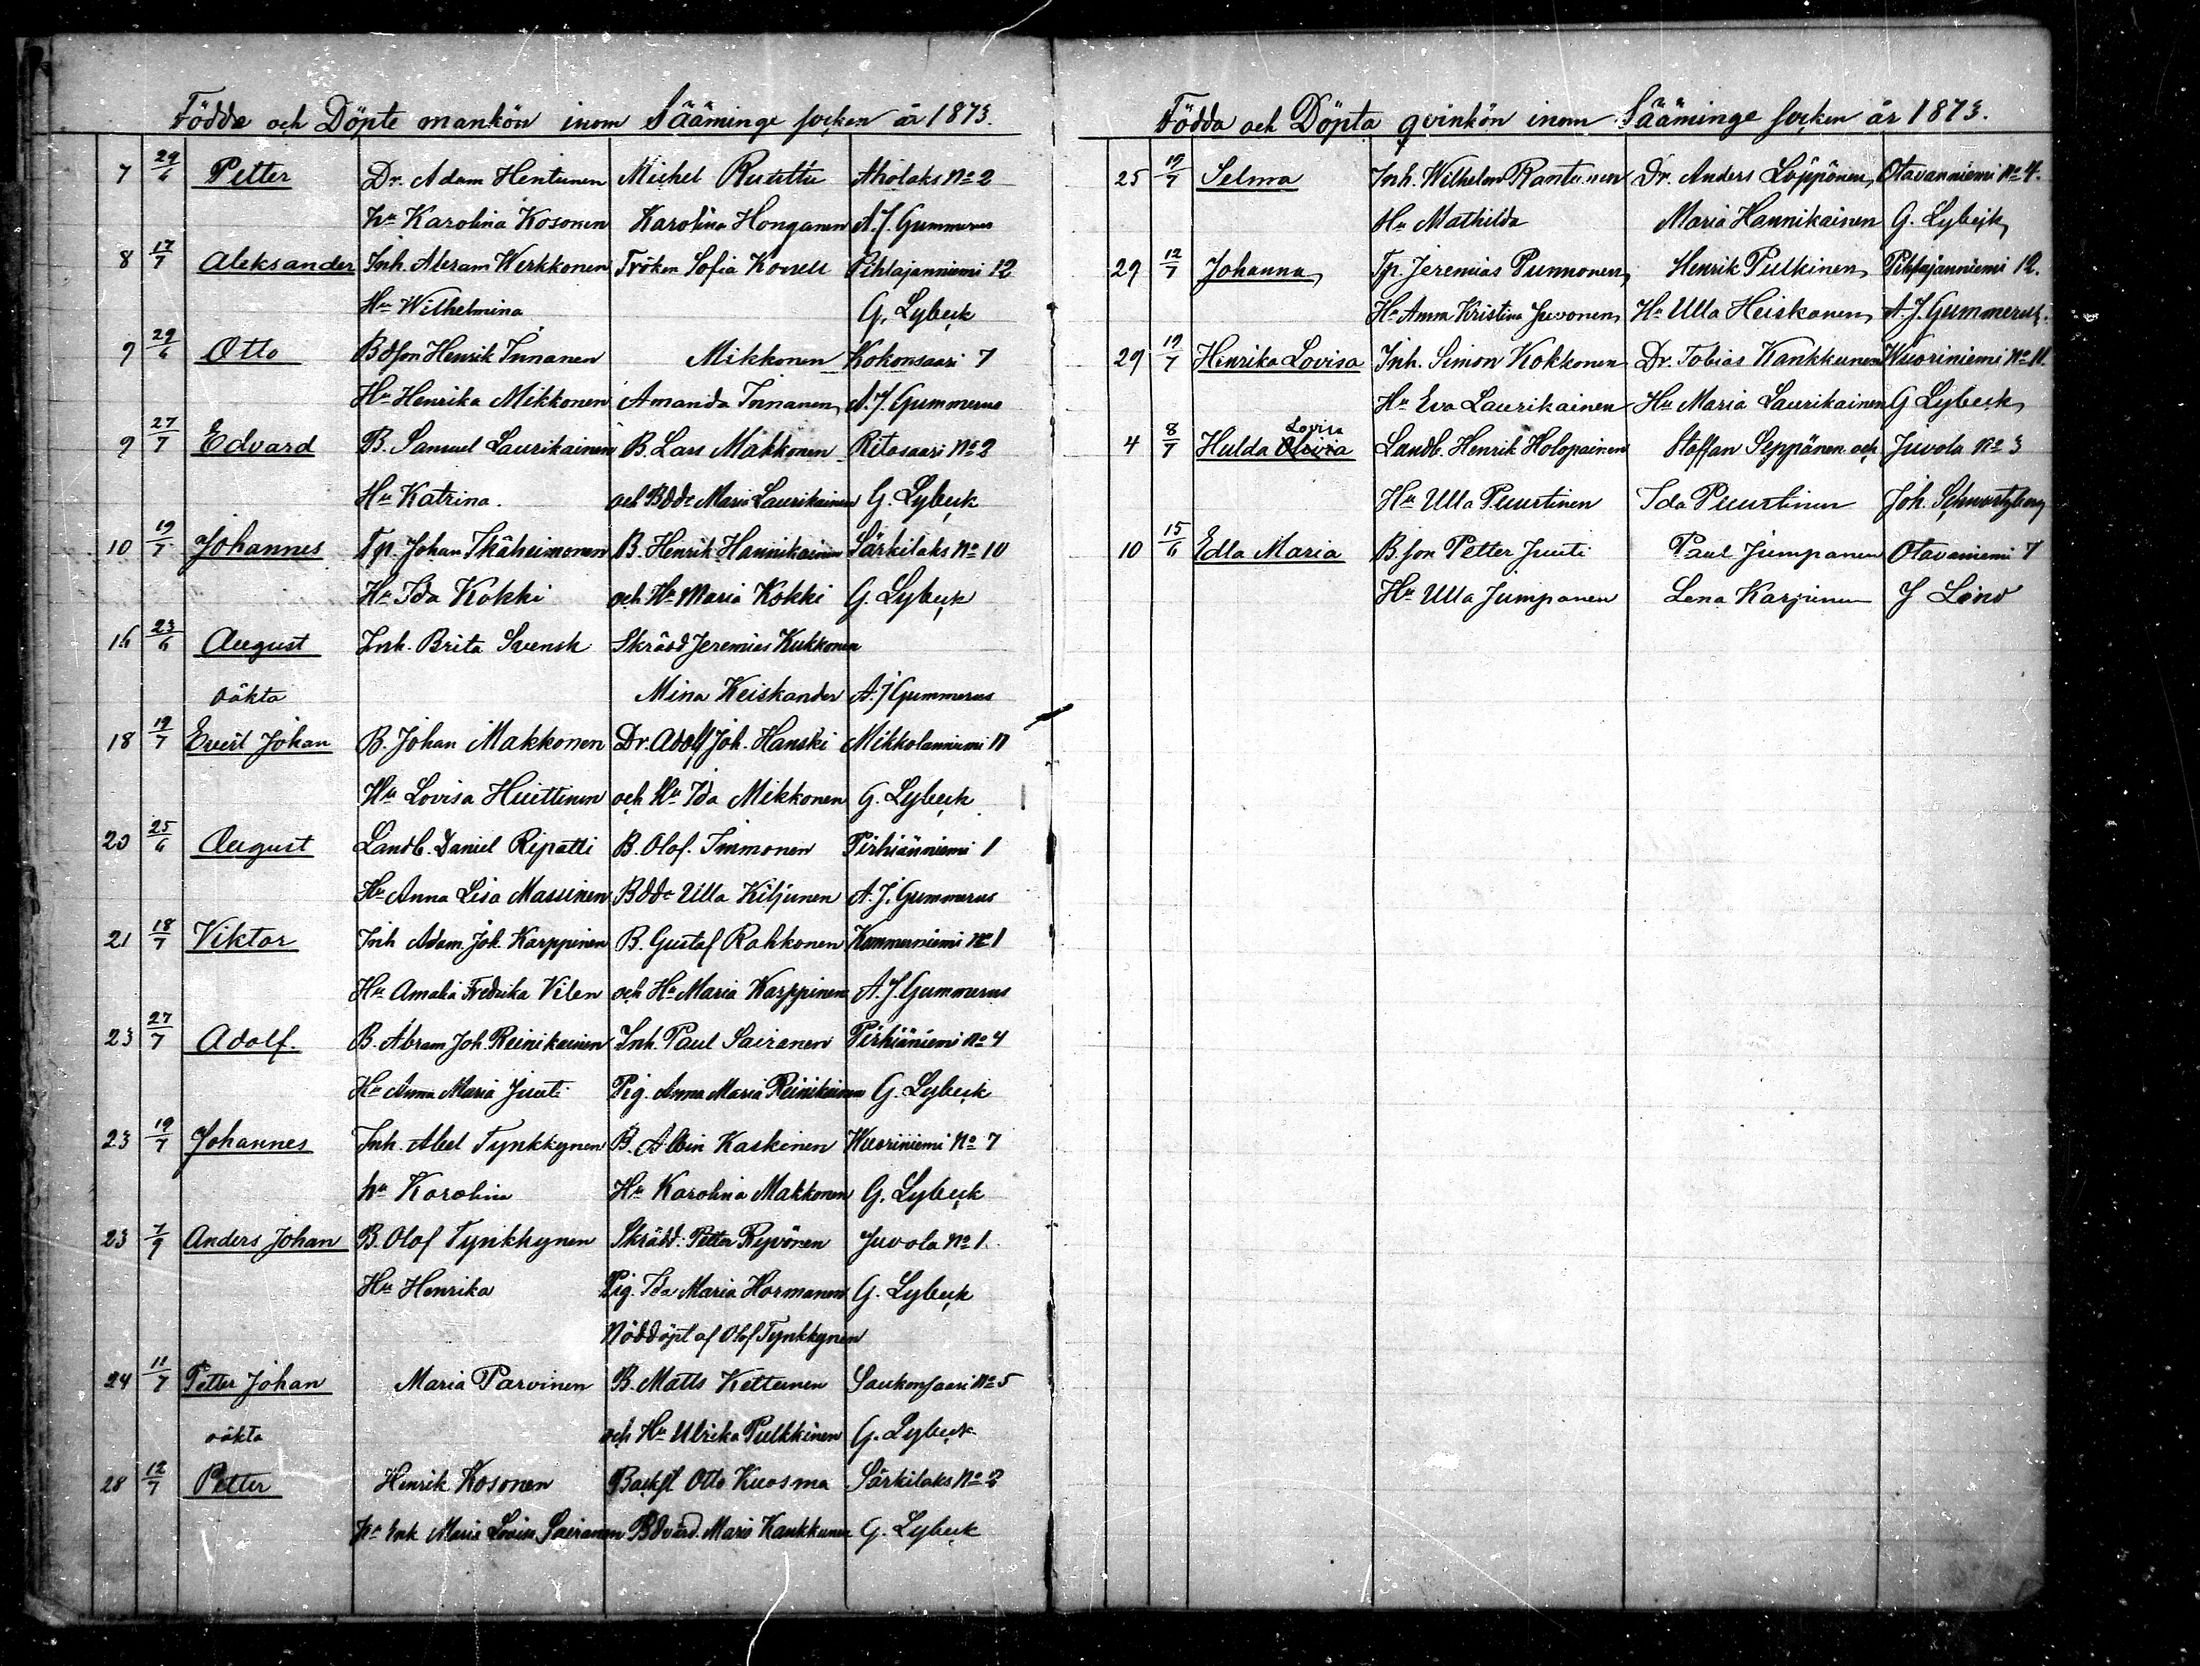 Födda och Döpte mankön inom Sääminge socken år 1873.
7 29/6 Petter Dr. Adam Hentunen Michel Ruuttu Aholaks No 2
hu Karolina Kosonen Karolina Honganen A. J. Gummerus
8 17/7 Aleksander Inh. Abram Werkkonen Fröken Sofia Konell Pihlajanniemi 12
Hu Wilhelmina G. Lybeck
9 29/6 Otto Bdson Henrik Innanen Mikkonen Kokonsaari 7
Hu Henrika Mikkonen Amanda Innanen A. J. Gummerus
9 27/7 Edvard B. Samuel Laurikainen B. Lars Makkonen Ritosaari No 2
Hu Katrina. och Bdde Maria Laurikainen G. Lybeck
10 19/7 Johannes Tp. Johan Ikäheimonen B. Henrik Hannikainen Särkilaks No 10
Hu Ida Kokki och Hu Maria Kokki G. Lybeck
16 23/6 August Inh. Brita Svensk Skrädd Jeremias Kukkonen
oäkta Mina Keiskander A. J Gummerus
18 19/7 Evert Johan B. Johan Makkonen Dr. Adolf Joh. Hanski Mikkolanniemi 11
Hu Lovisa Huittinen och Hu Ida Mikkonen G. Lybeck
20 25/6 August Landb. Daniel Ripatti B. Olof. Immonen Pirhiänniemi 1
Hu Anna Lisa Massinen Bdde Ulla Kiljunen A. J. Gummerus
21 18/7 Viktor Inh Adam Joh. Karppinen B. Gustaf Rahkonen Kommerniemi No 1
Hu Amalia Fredrika Vilen och Hu Maria Karppinen A. J. Gummerus
23 27/7 Adolf. B. Abram Joh. Reinikainen Inh. Paul Sairanen Pirhiäniemi No 4
Hu Anna Maria Juuti Pig. Anna Maria Reinikainen G. Lybeck
23 19/7 Johannes Inh. Abel Tynkkynen B. Albin Kaskinen Kuoriniemi No 7
hu Karolina Hu Karolina Makkonen G. Lybeck
23 7/9 Anders Johan B. Olof Tynkkynen Skrädd. Petter Ryvönen Juvola No 1.
Hu Henrika Pig. Ida Maria Hormanen G. Lybeck
Nöddöpt af Olof Tynkkynen
24 11/7 Petter Johan Maria Parvinen B. Matts Kettunen Saukonsaari No 5
oäkta och Hu Ulrika Pulkkinen G. Lybeck
28 12/7 Petter Henrik Kosonen Backst Otto Kuosma Särkilaks No 2
Maria Lovisa Sairanen Maria Kankkunen G. Lybeck
Födda och Döpta qvinkön inom Sääminge socken år 1873.
25 19/7 Selma Inh. Wilhelm Rantunen Dr. Anders Löppönen Otavanniemi No 4.
Hu Mathilda Maria Hannikainen G. Lybeck
29 12/7 Johanna Tp. Jeremias Punnonen Henrik Pulkinen Pihlajanniemi 12.
Hu Anna Kristina Juvonen Hu Ulla Heiskanen A. J. Gummerus.
29 19/7 Henrika Lovisa Inh. Simon Kokkonen Dr. Tobias Kankkunen Kuoriniemi No 11.
Hu Eva Laurikainen Hu Maria Laurikainen G Lybeck
Lovisa
4 8/7 Hulda Olivia Landb. Henrik Holopainen Staffan Seppänen och Juvola No 3
Hu Ulla Puurtinen Ida Puurtinen Joh. Schwartzberg
10 15/6 Edla Maria B. son Petter Juuti Paul Jumpanen Otavaniemi 7
Hu Ulla Jumpanen Lena Karjunen J Lino